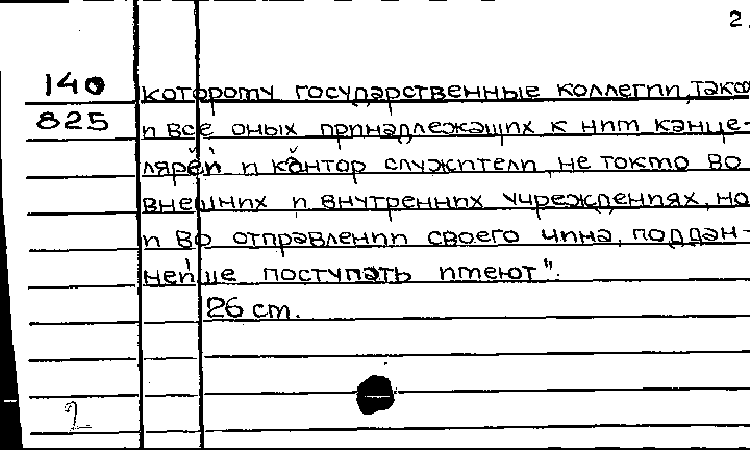 2.
140 которому государственные коллегии, такж
825 и все оных принадлежащих к ним канце-
ляреи и кантор служители, не токмо во
внешних и внутренних учреждениях, но
и во отправлении своего чина, поддан-
нейше поступать имеют".
26 ст.
2